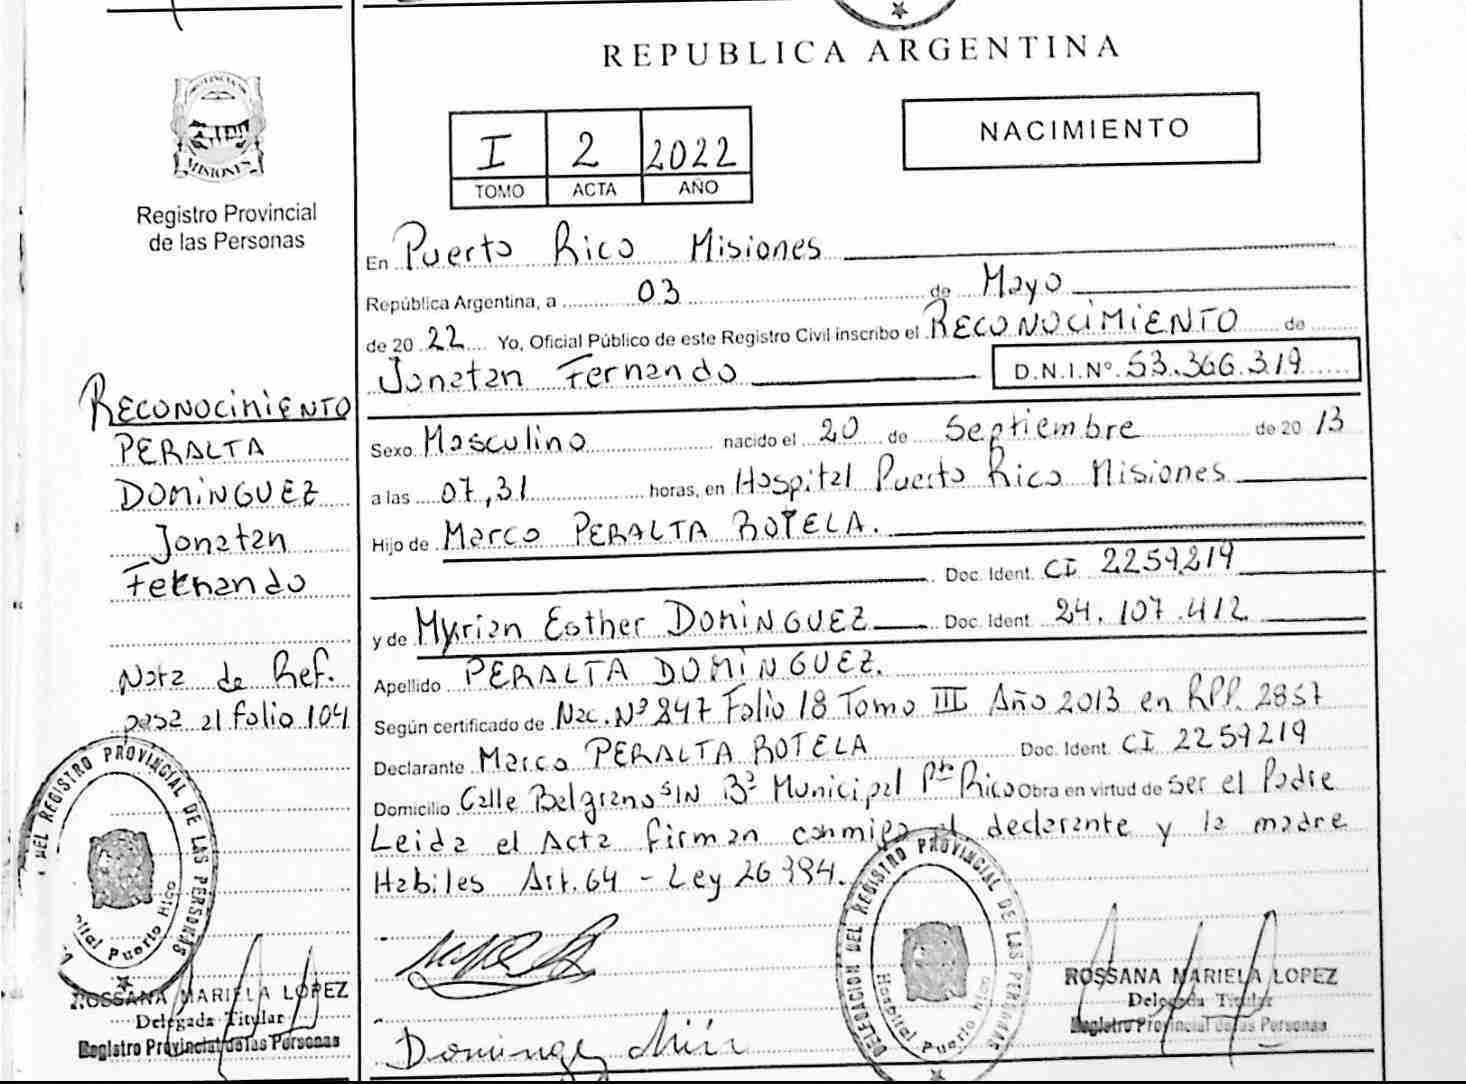 REPUBLICA ARGENTINA
PROVINCIA DE
MISIONES
Registro Provincial
de las Personas
I 2 2022
TOMO ACTA AÑO
NACIMIENTO
En Puerto Rico Misiones
República Argentina, a 03 de Mayo
de 20 22 Yo, Oficial Público de este Registro Civil inscribo el RECONOCIMIENTO de
Jonatan Fernando D.N.I.Nº 53.366.319
Sexo Masculino nacido el 20 de Septiembre de 20 13
a las 07,31 horas, en Hospital Puerto Rico Misiones
Hijo de Marco PERALTA ROTELA.
Doc. Ident. CI 2259219
y de Myrian Esther DOMINGUEZ Doc. Ident. 24.107.412
Apellido PERALTA DOMINGUEZ.
Según certificado de Nac. Nº 847 Folio 18 Tomo III Año 2013 en RPP. 2857
Declarante Marco PERALTA ROTELA Doc. Ident. CI 2259219
Domicilio Calle Belgrano S/N Bº Municipal Pto Rico Obra en virtud de Ser el Padre
Leida el Acta firman conmigo el declarante y la madre
Habiles Art. 64 - Ley 26994.
RECONOCIMIENTO
PERALTA
DOMINGUEZ
Jonatan
Fernando
Nota de Ref.
pasa al folio 104
DEL REGISTRO PROVINCIAL DE LAS PERSONAS
Puerto Rico
ROSSANA MARIELA LOPEZ
Delegada Titular
Registro Provincial de las Personas
Dominguez
DELEGACION DEL REGISTRO PROVINCIAL DE LAS PERSONAS
Hospital Puerto Rico
ROSSANA MARIELA LOPEZ
Delegada Titular
Registro Provincial de las Personas